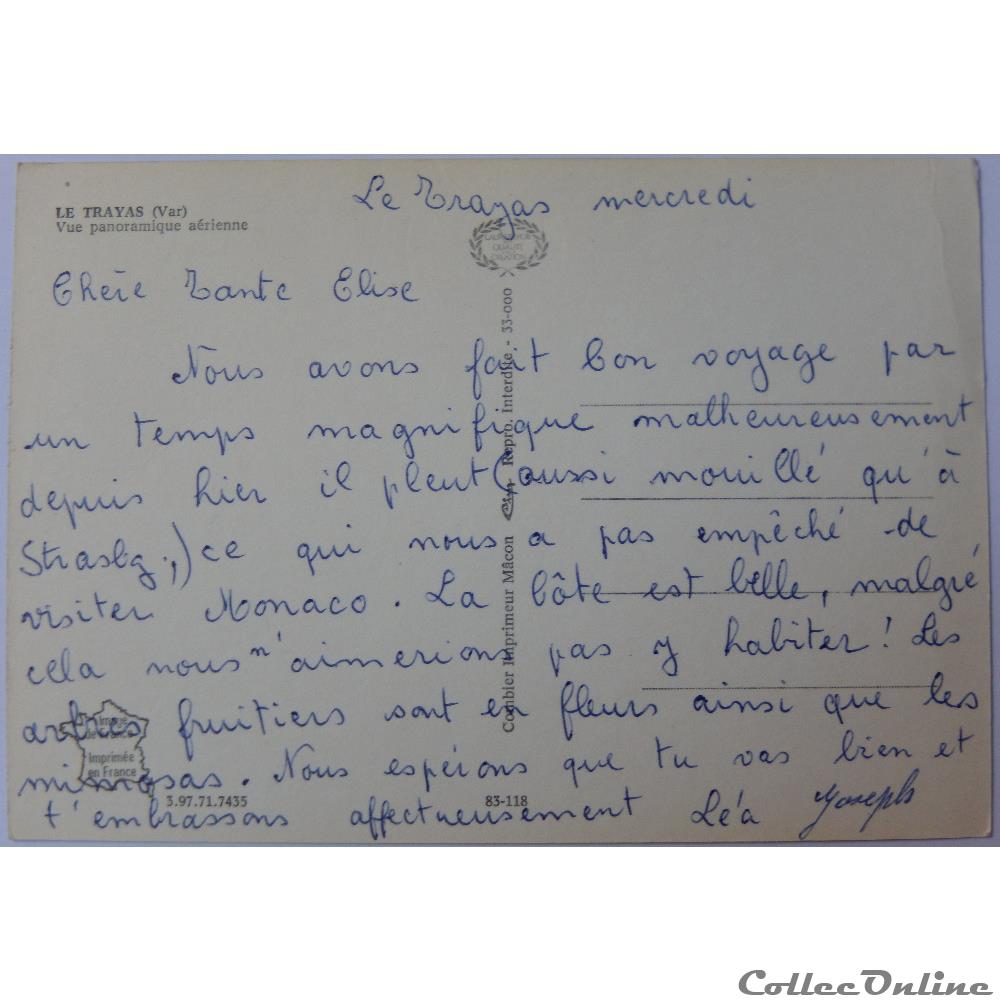 Le Trayas mercredi
LE TRAYAS (Var)
Vue panoramique aérienne
Chère Tante Elise
Nous avons fait bon voyage par
un temps magnifique malheureusement
depuis hier il pleut (aussi mouillé qu'à
Strasbg;) ce qui nous a pas empêché de
visiter Monaco. La Côte est belle, malgré
cela nous n'aimerions pas y habiter! Les
arbres fruitiers sont en fleurs ainsi que les
mimosas. Nous espérons que tu vas bien et
t'embrassons affectueusement Léa Joseph
Combier Imprimeur Mâcon Repro. Interdite - 33-000
QUALITÉ
CREATION
Image
de France
Imprimée
en France
3.97.71.7435
83-118
CollecOnline